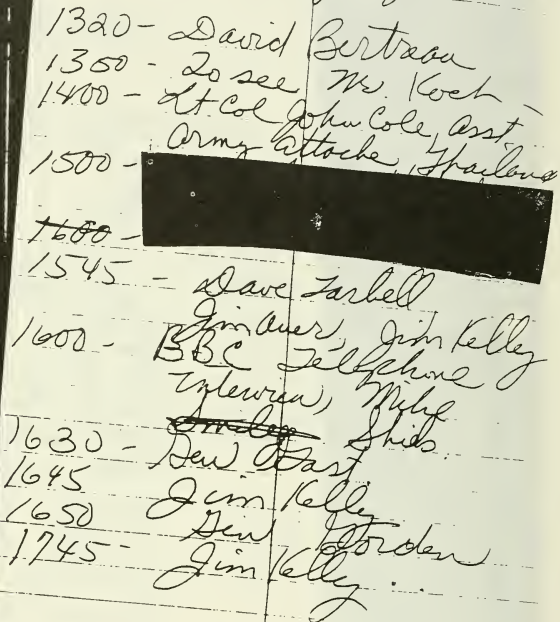 1320 - David Bertrau
1350 - To see Mr. Koch -
1400 - Lt Col John Cole, asst.
army attache, Thailand
1500 -
1600 -
1545 - Dave Tarbell
Jim Auer, Jim Kelly
1600 - BBC Telephone
Interview, Mike
Shids.
1630 - Gen Gast
1645 Jim Kelly
1650 Gen Gorden
1745 - Jim Kelly